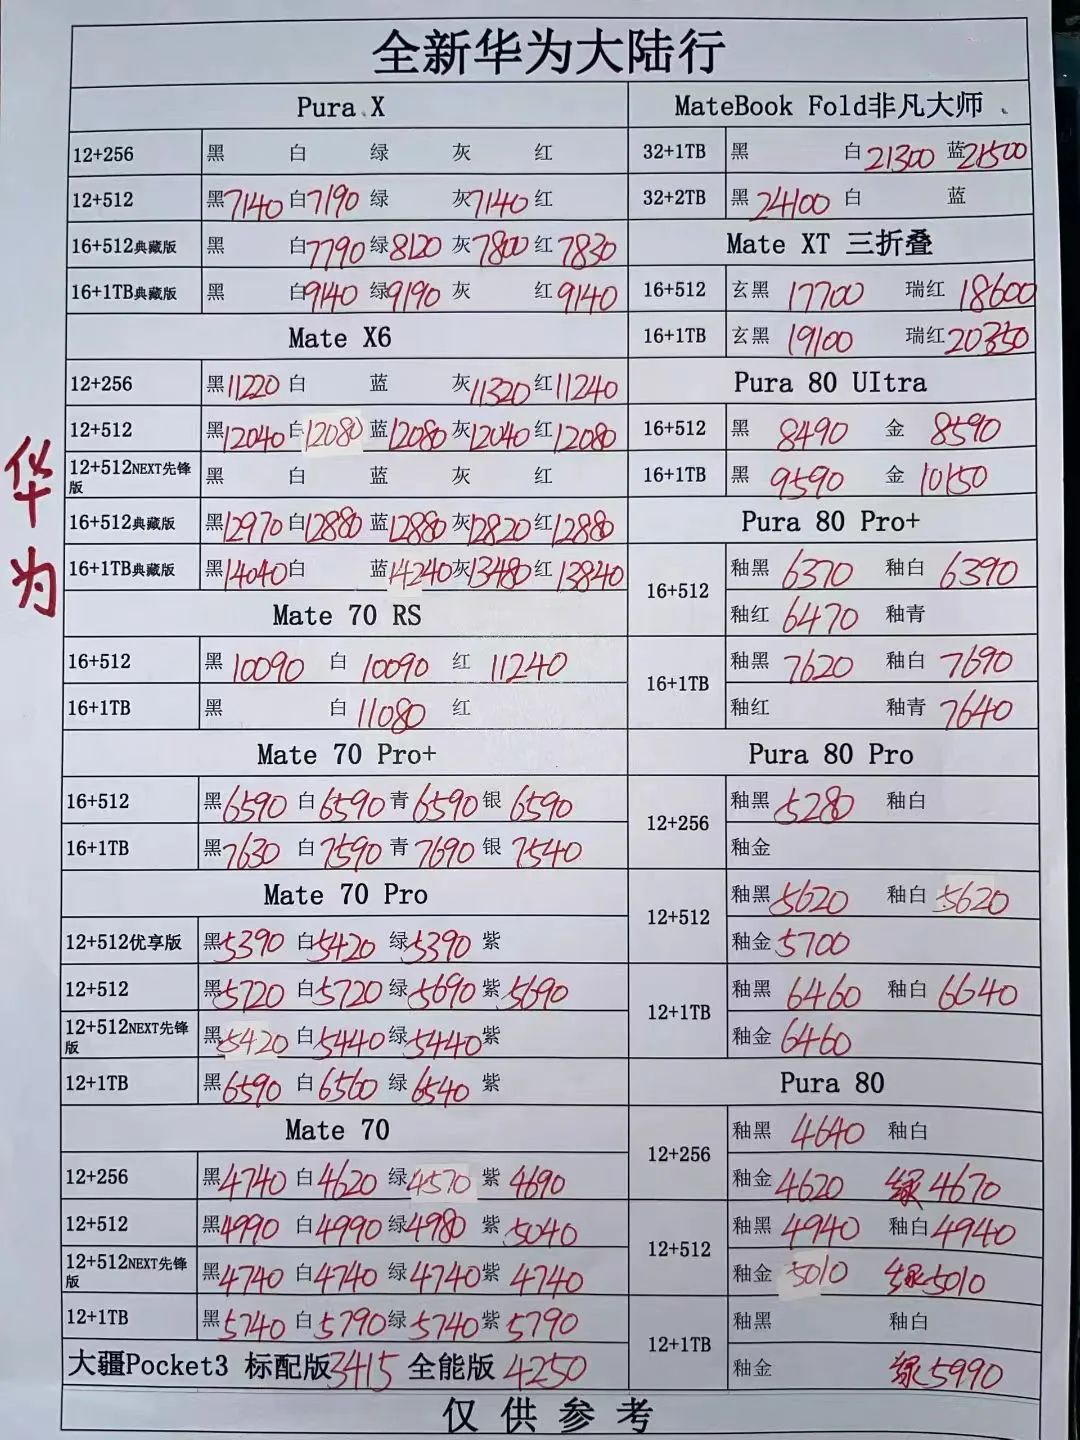 全新华为大陆行
华为
Pura X
12+256 黑 白 绿 灰 红
12+512 黑7140 白7190 绿 灰7140 红
16+512典藏版 黑 白7790 绿8120 灰7800 红7830
16+1TB典藏版 黑 白9140 绿9190 灰 红9140
Mate X6
12+256 黑11220 白 蓝 灰11320 红11240
12+512 黑12040 白12080 蓝12080 灰12040 红12080
12+512NEXT先锋版 黑 白 蓝 灰 红
16+512典藏版 黑12970 白12880 蓝12880 灰12820 红12880
16+1TB典藏版 黑14040 白 蓝14240 灰13480 红13840
Mate 70 RS
16+512 黑 10090 白 10090 红 11240
16+1TB 黑 白 11080 红
Mate 70 Pro+
16+512 黑6590 白6590 青6590 银 6590
16+1TB 黑7630 白7590 青7690 银 7540
Mate 70 Pro
12+512优享版 黑5390 白5420 绿5390 紫
12+512 黑5720 白5720 绿5690 紫5690
12+512NEXT先锋版 黑5420 白5440 绿5440 紫
12+1TB 黑6590 白6560 绿6540 紫
Mate 70
12+256 黑4740 白4620 绿4570 紫 4690
12+512 黑4990 白4990 绿4980 紫 5040
12+512NEXT先锋版 黑4740 白4740 绿4740 紫 4740
12+1TB 黑5740 白5790 绿5740 紫5790
大疆Pocket3 标配版3415 全能版 4250
MateBook Fold非凡大师
32+1TB 黑 白21300 蓝21500
32+2TB 黑24100 白 蓝
Mate XT 三折叠
16+512 玄黑 17700 瑞红 18600
16+1TB 玄黑 19100 瑞红20350
Pura 80 UItra
16+512 黑 8490 金 8590
16+1TB 黑 9590 金 10150
Pura 80 Pro+
16+512 釉黑 6370 釉白 6390
釉红 6470 釉青
16+1TB 釉黑 7620 釉白 7690
釉红 釉青 7640
Pura 80 Pro
12+256 釉黑5280 釉白
釉金
12+512 釉黑5620 釉白 5620
釉金5700
12+1TB 釉黑 6460 釉白 6640
釉金 6460
Pura 80
12+256 釉黑 4640 釉白
釉金4620 绿4670
12+512 釉黑4940 釉白4940
釉金 5010 绿5010
12+1TB 釉黑 釉白
釉金 绿5990
仅供参考